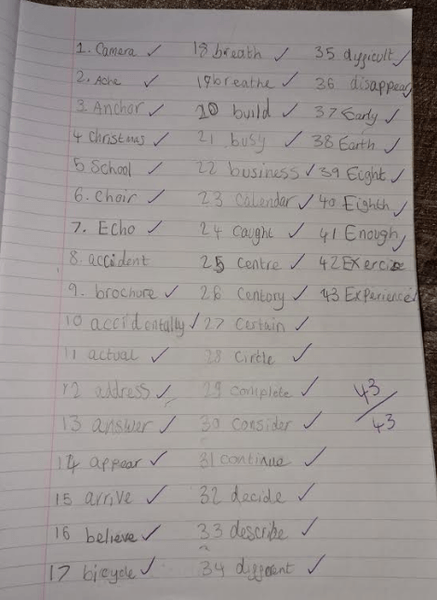 1. Camera ✓
2. Ache ✓
3 Anchor ✓
4 Christmas ✓
5 School ✓
6. Choir ✓
7. Echo ✓
8. accident
9. brochure ✓
10 accidentally ✓
11 actual ✓
12 address ✓
13 answer ✓
14 appear ✓
15 arrive ✓
16 believe ✓
17 bicycle ✓
18 breath ✓
19 breathe ✓
20 build ✓
21 busy ✓
22 business ✓
23 Calendar ✓
24 Caught ✓
25 Centre ✓
26 Centory ✓
27 Certain ✓
28 Circle ✓
29 complete ✓
30 consider ✓
31 continue ✓
32 decide ✓
33 describe ✓
34 different ✓
35 difficult ✓
36 disappear ✓
37 Early ✓
38 Earth ✓
39 Eight ✓
40 Eighth ✓
41 Enough ✓
42 Exercise ✓
43 Experience ✓
43/43